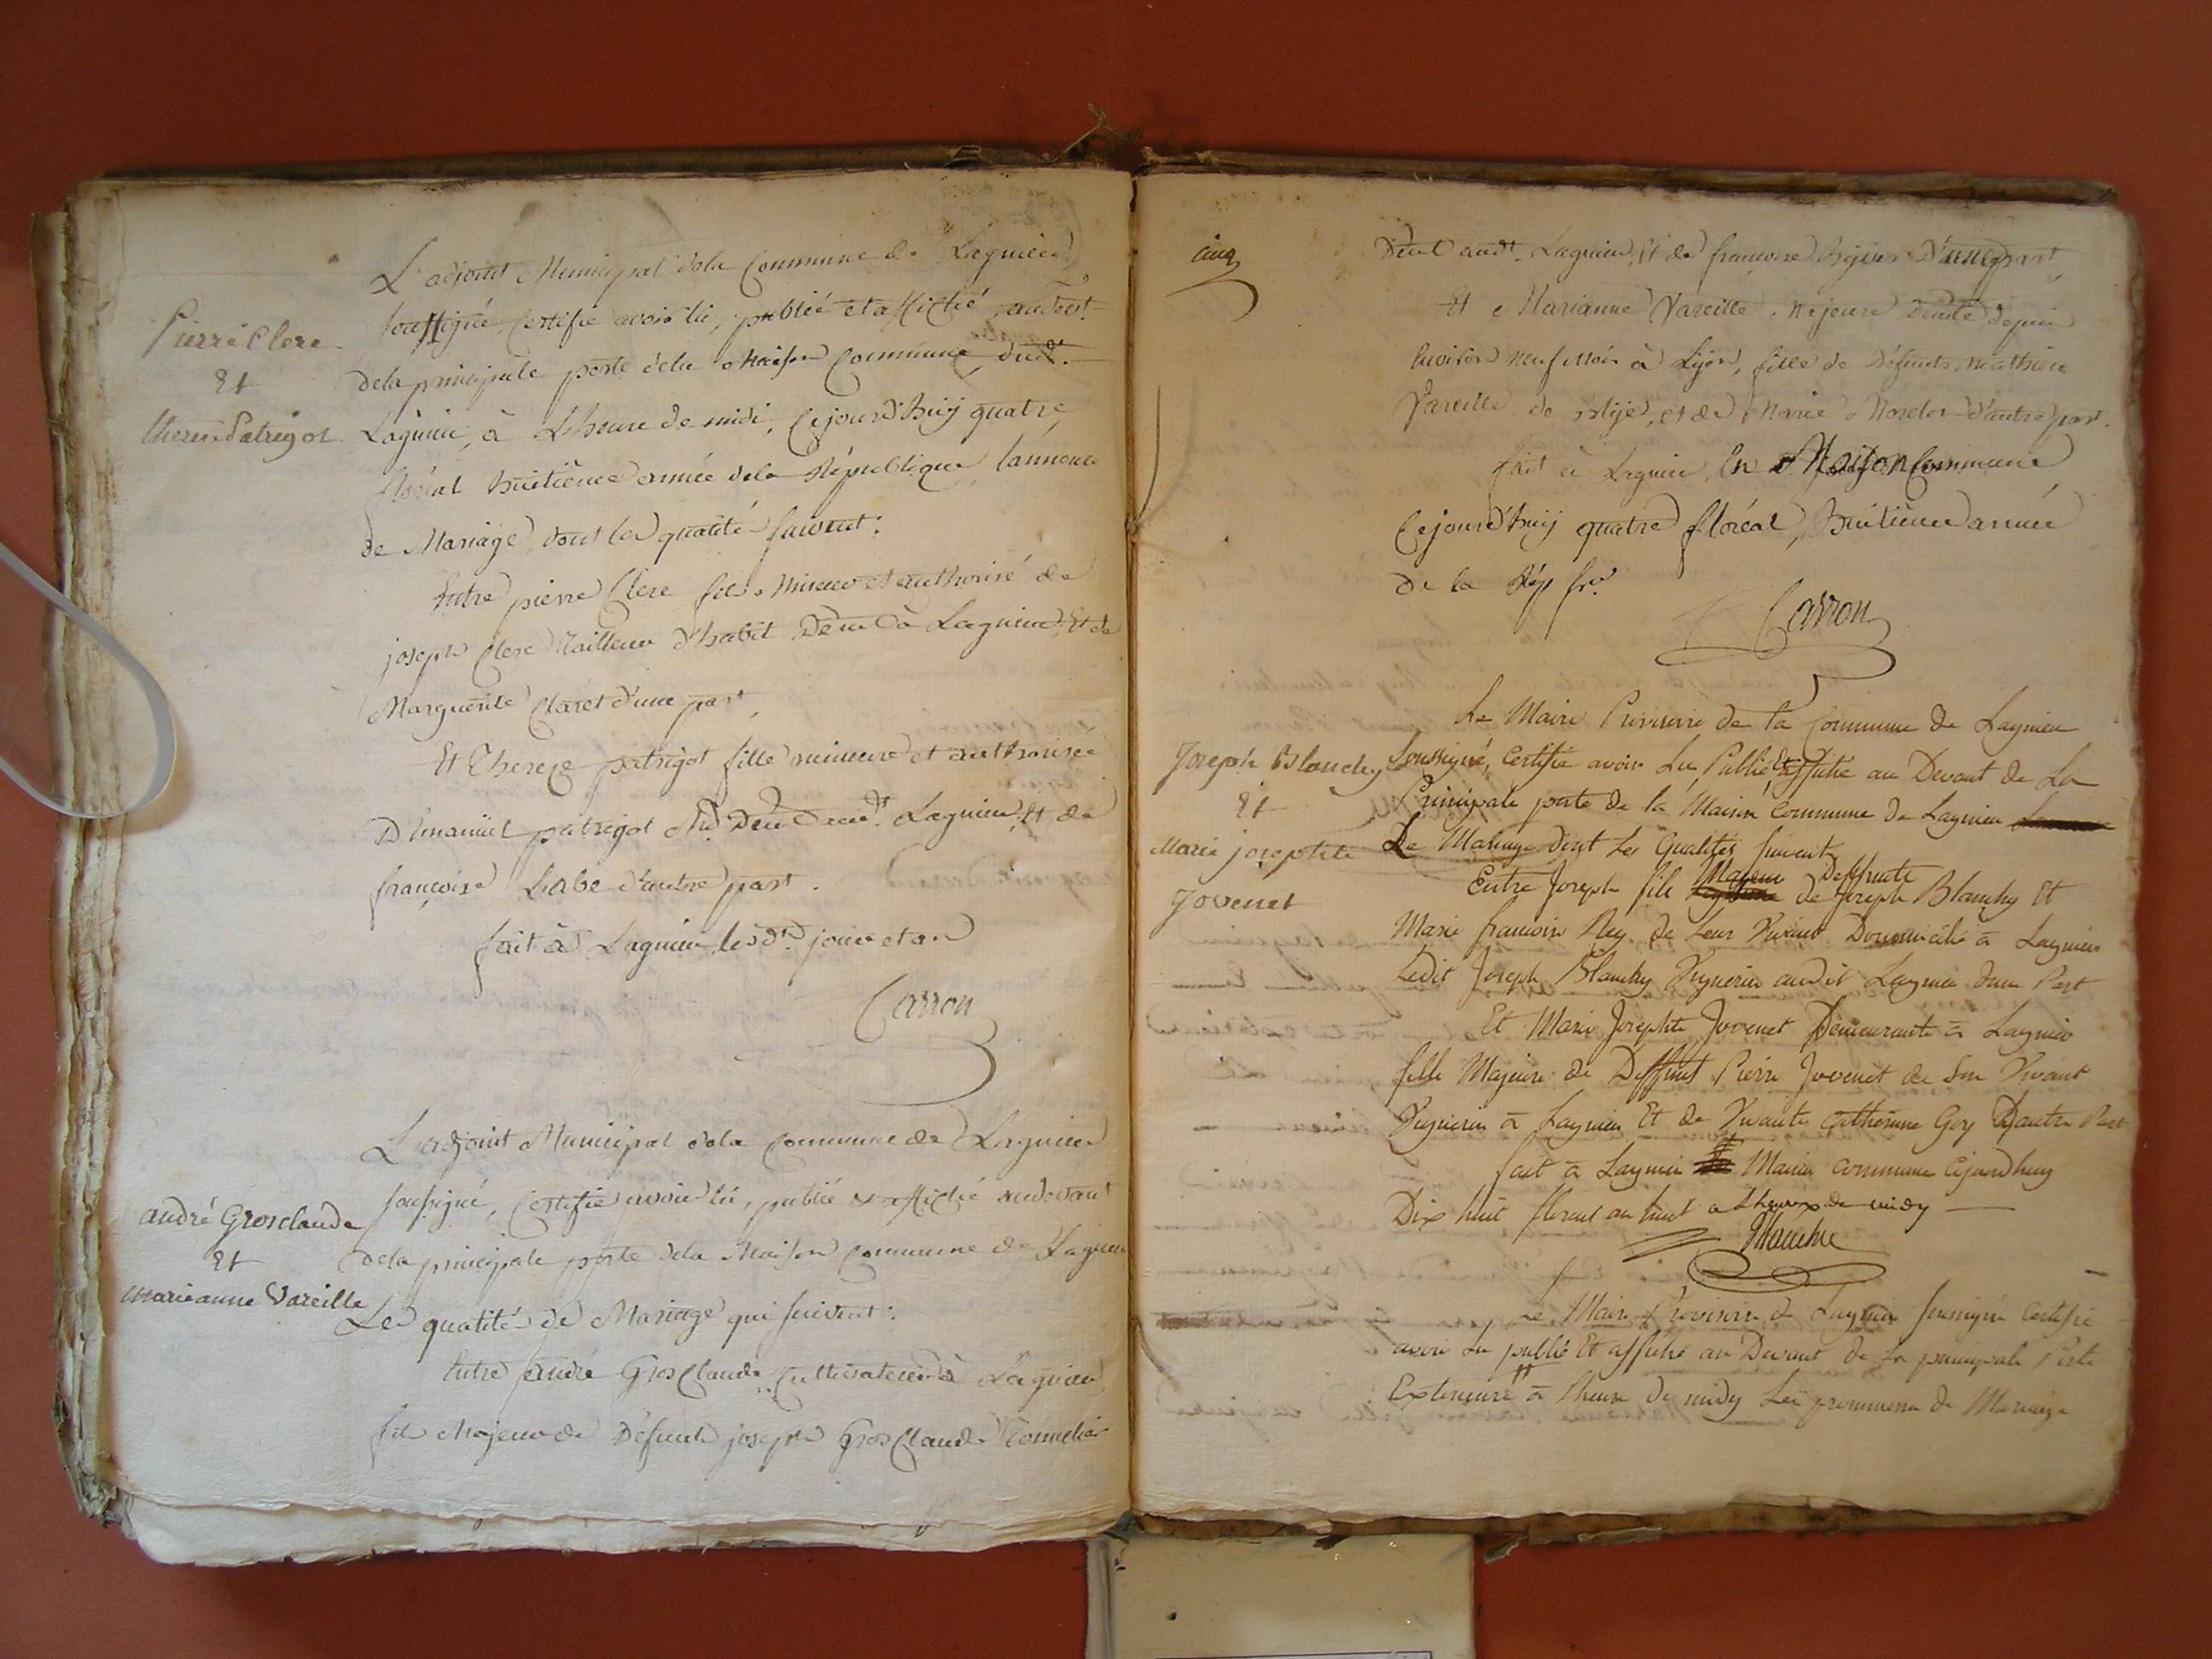 L'adjoint Municipal dela Commune de Lagnieu
Pierre Clerc
Et
therese Patrigot
soussigné, Certifie avoir lu, publié et affiché, audevt
dela principale porte dela Maison Commune dud.
Lagnieu, à L'heure de midi, Cejourd'huy quatre
floréal huitième année dela République, l'annonce
de Mariage, dont les qualité suivent:
Entre pierre Clerc fils Mineur et authorisé de
joseph Clerc Tailleur d'habit Demt à Lagnieu, Et de
Marguerite Claret d'une part,
Et Thereze patrigot fille mineure et authorisée
D'Emanüel patrigot Md Demt aud. Lagnieu, Et de
françoise Labe d'autre part.
fait à Lagnieu, lesdts jour et an
Carron
L'adjoint Municipal dela Commune de Lagnieu
andré Grosclaude
Et
Marieanne Vareille
soussigné, Certifie avoir lu, publié et affiché audevant
dela principale porte dela Maison Commune de Lagnieu
Les qualité de Mariage qui suivent:
Entre andré GrosClaude Cultivateur à Lagnieu,
fils Majeur de Défunt joseph GrosClaude Tonnelier
cinq
Demt audt. Lagnieu, Et de françoise D'une part
Et Marianne Vareille Majeure Demte depuis
Environ neuf mois à Lyon, fille de Défunts Mathieu
Vareille de et de Marie d'autre part.
fait à Lagnieu En Maison Commune
Cejourd'huy quatre floréal, huitième année
de la Rép fr.
Carron
Le Maire Provisoire de la Commune de Lagnieu
Joseph Blanchy
Et
Marie josephte
Jovenet
Soussigné, Certifie avoir Lu Publié et affiché au Devant de La
Principale porte de la Maison Commune de Lagnieu
Le Mariage dont Les Qualités suivent
Entre Joseph fils Majeur de Deffunts Joseph Blanchy Et
Marie francoise Rey de Leur Vivant Domicilié à Lagnieu
Ledit Joseph Blanchy Vigneron audit Lagnieu dune Part
Et Marie Josephte Jovenet Demeurante à Lagnieu
fille Majeure de Deffunt Pierre Jovenet de Son Vivant
Vigneron à Lagnieu Et de Vivante Catherine Goy Dautre Part
fait à Lagnieu Maison commune Cejourdhuy
Dix huit floreal an huit a Lheure de midy
Le Maire Provisoire de Lagnieu soussigné Certifie
avoir Lu publié Et affiché au Devant de La principale Porte
Exterieure à Lheure de midy Les promesses de Mariage